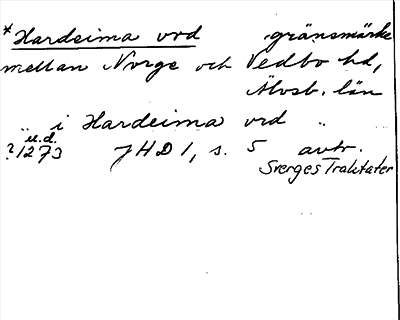 *Hardeima vrd gränsmärke
mellan Norge och Vedbo hd,
Älvsb. län
"i Hardeima vrd"
u.d.
?1273 JHD 1, s. 5 avtr.
Sverges Traktater